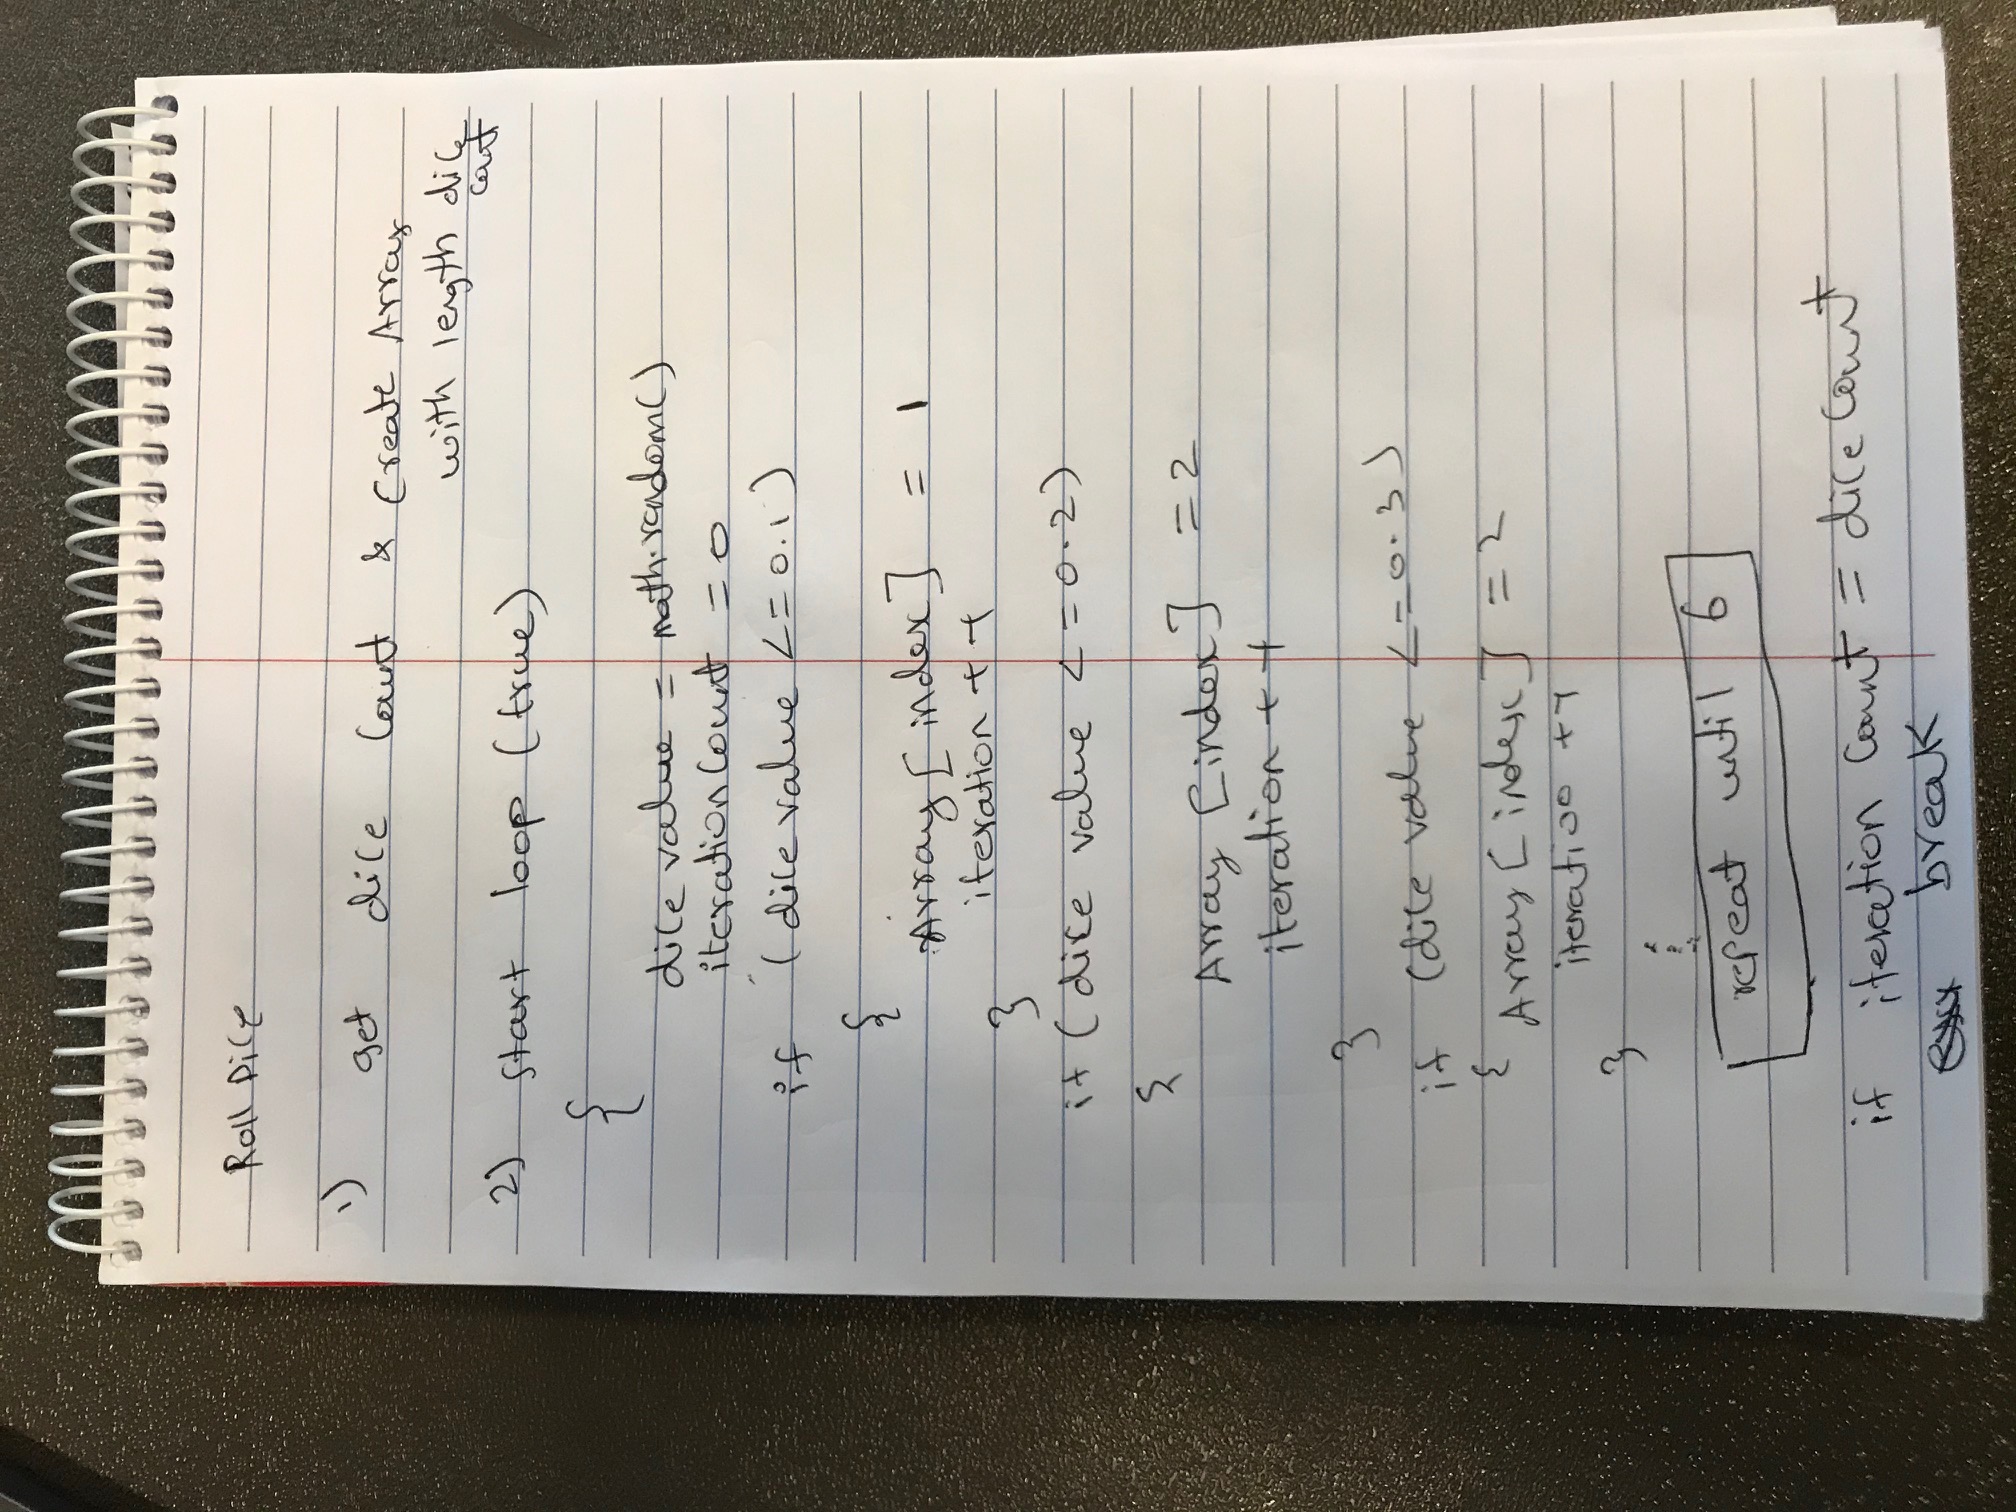 Roll Dice
1) get dice Count & Create Array
with length dice
count
2) start loop (true)
{
dice value = math.random()
iteration Count = 0
if (dice value <= 0.1)
{
Array [index] = 1
iteration ++
}
if (dice value <= 0.2)
{
Array [index] = 2
iteration ++
}
if (dice value <= 0.3)
{ Array [index] = 2
iteration ++
}
repeat until 6
if iteration Count = dice Count
break